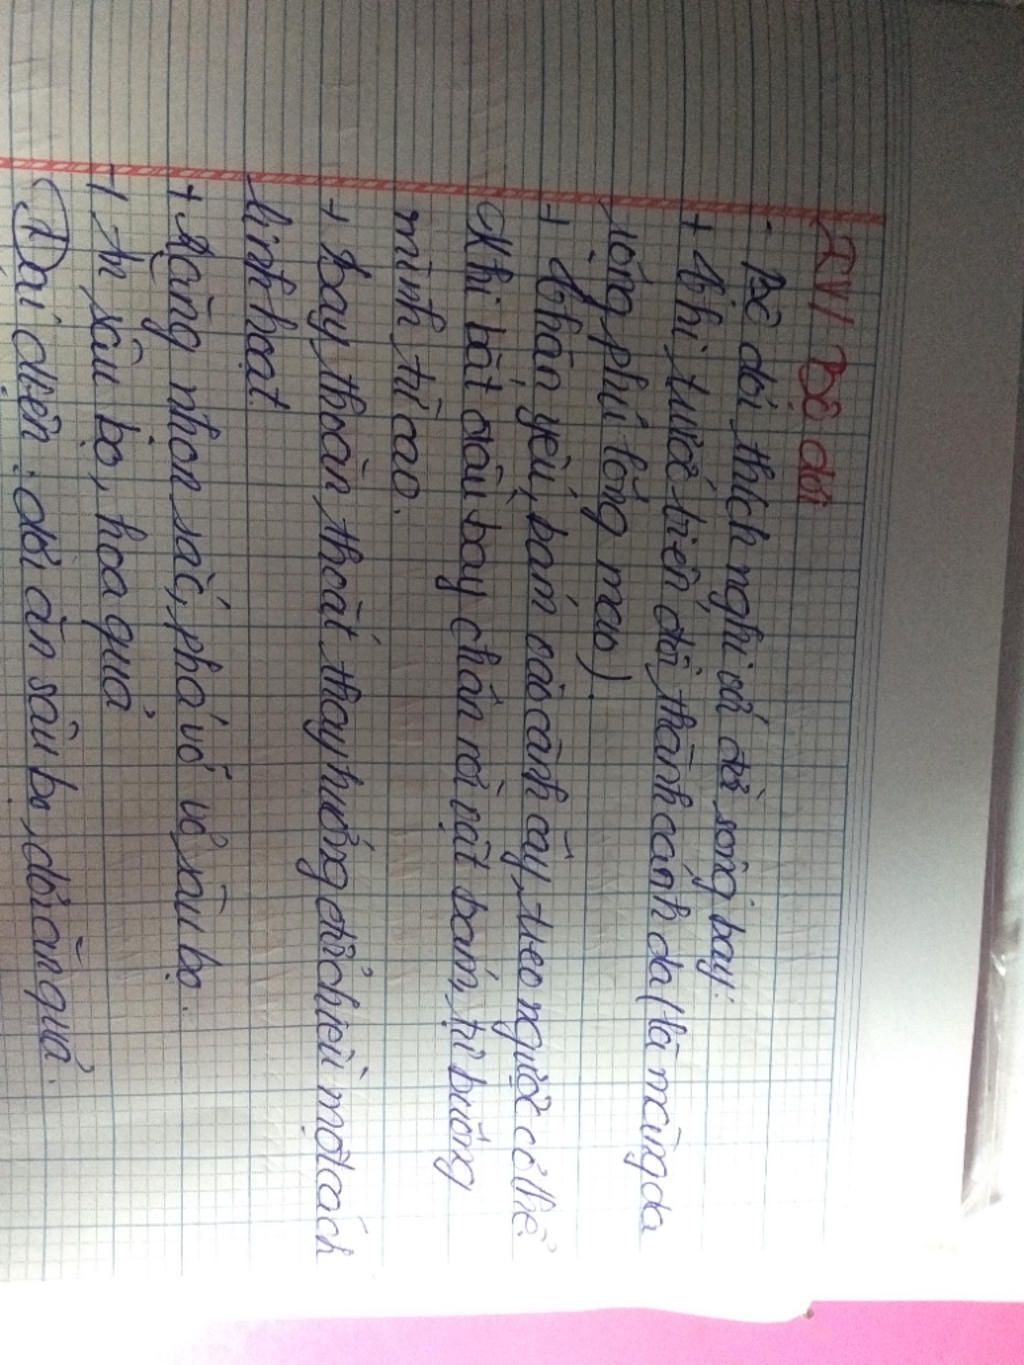 IV/ Bộ dơi
- Bộ dơi thích nghi với đời sống bay:
+ Chi trước biến đổi thành cánh da (là màng da
rộng phủ lông mao).
+ Chân yếu, bám vào cành cây, treo ngược cơ thể
Khi bắt đầu bay chân rời vật bám, tự buông
mình từ cao.
+ bay thoăn thoắt thay hướng đổi chiều một cách
linh hoạt
+ Răng nhọn sắc, phá vỡ vỏ sâu bọ.
+ Ăn sâu bọ, hoa quả
Đại diện: dơi ăn sâu bọ, dơi ăn quả.